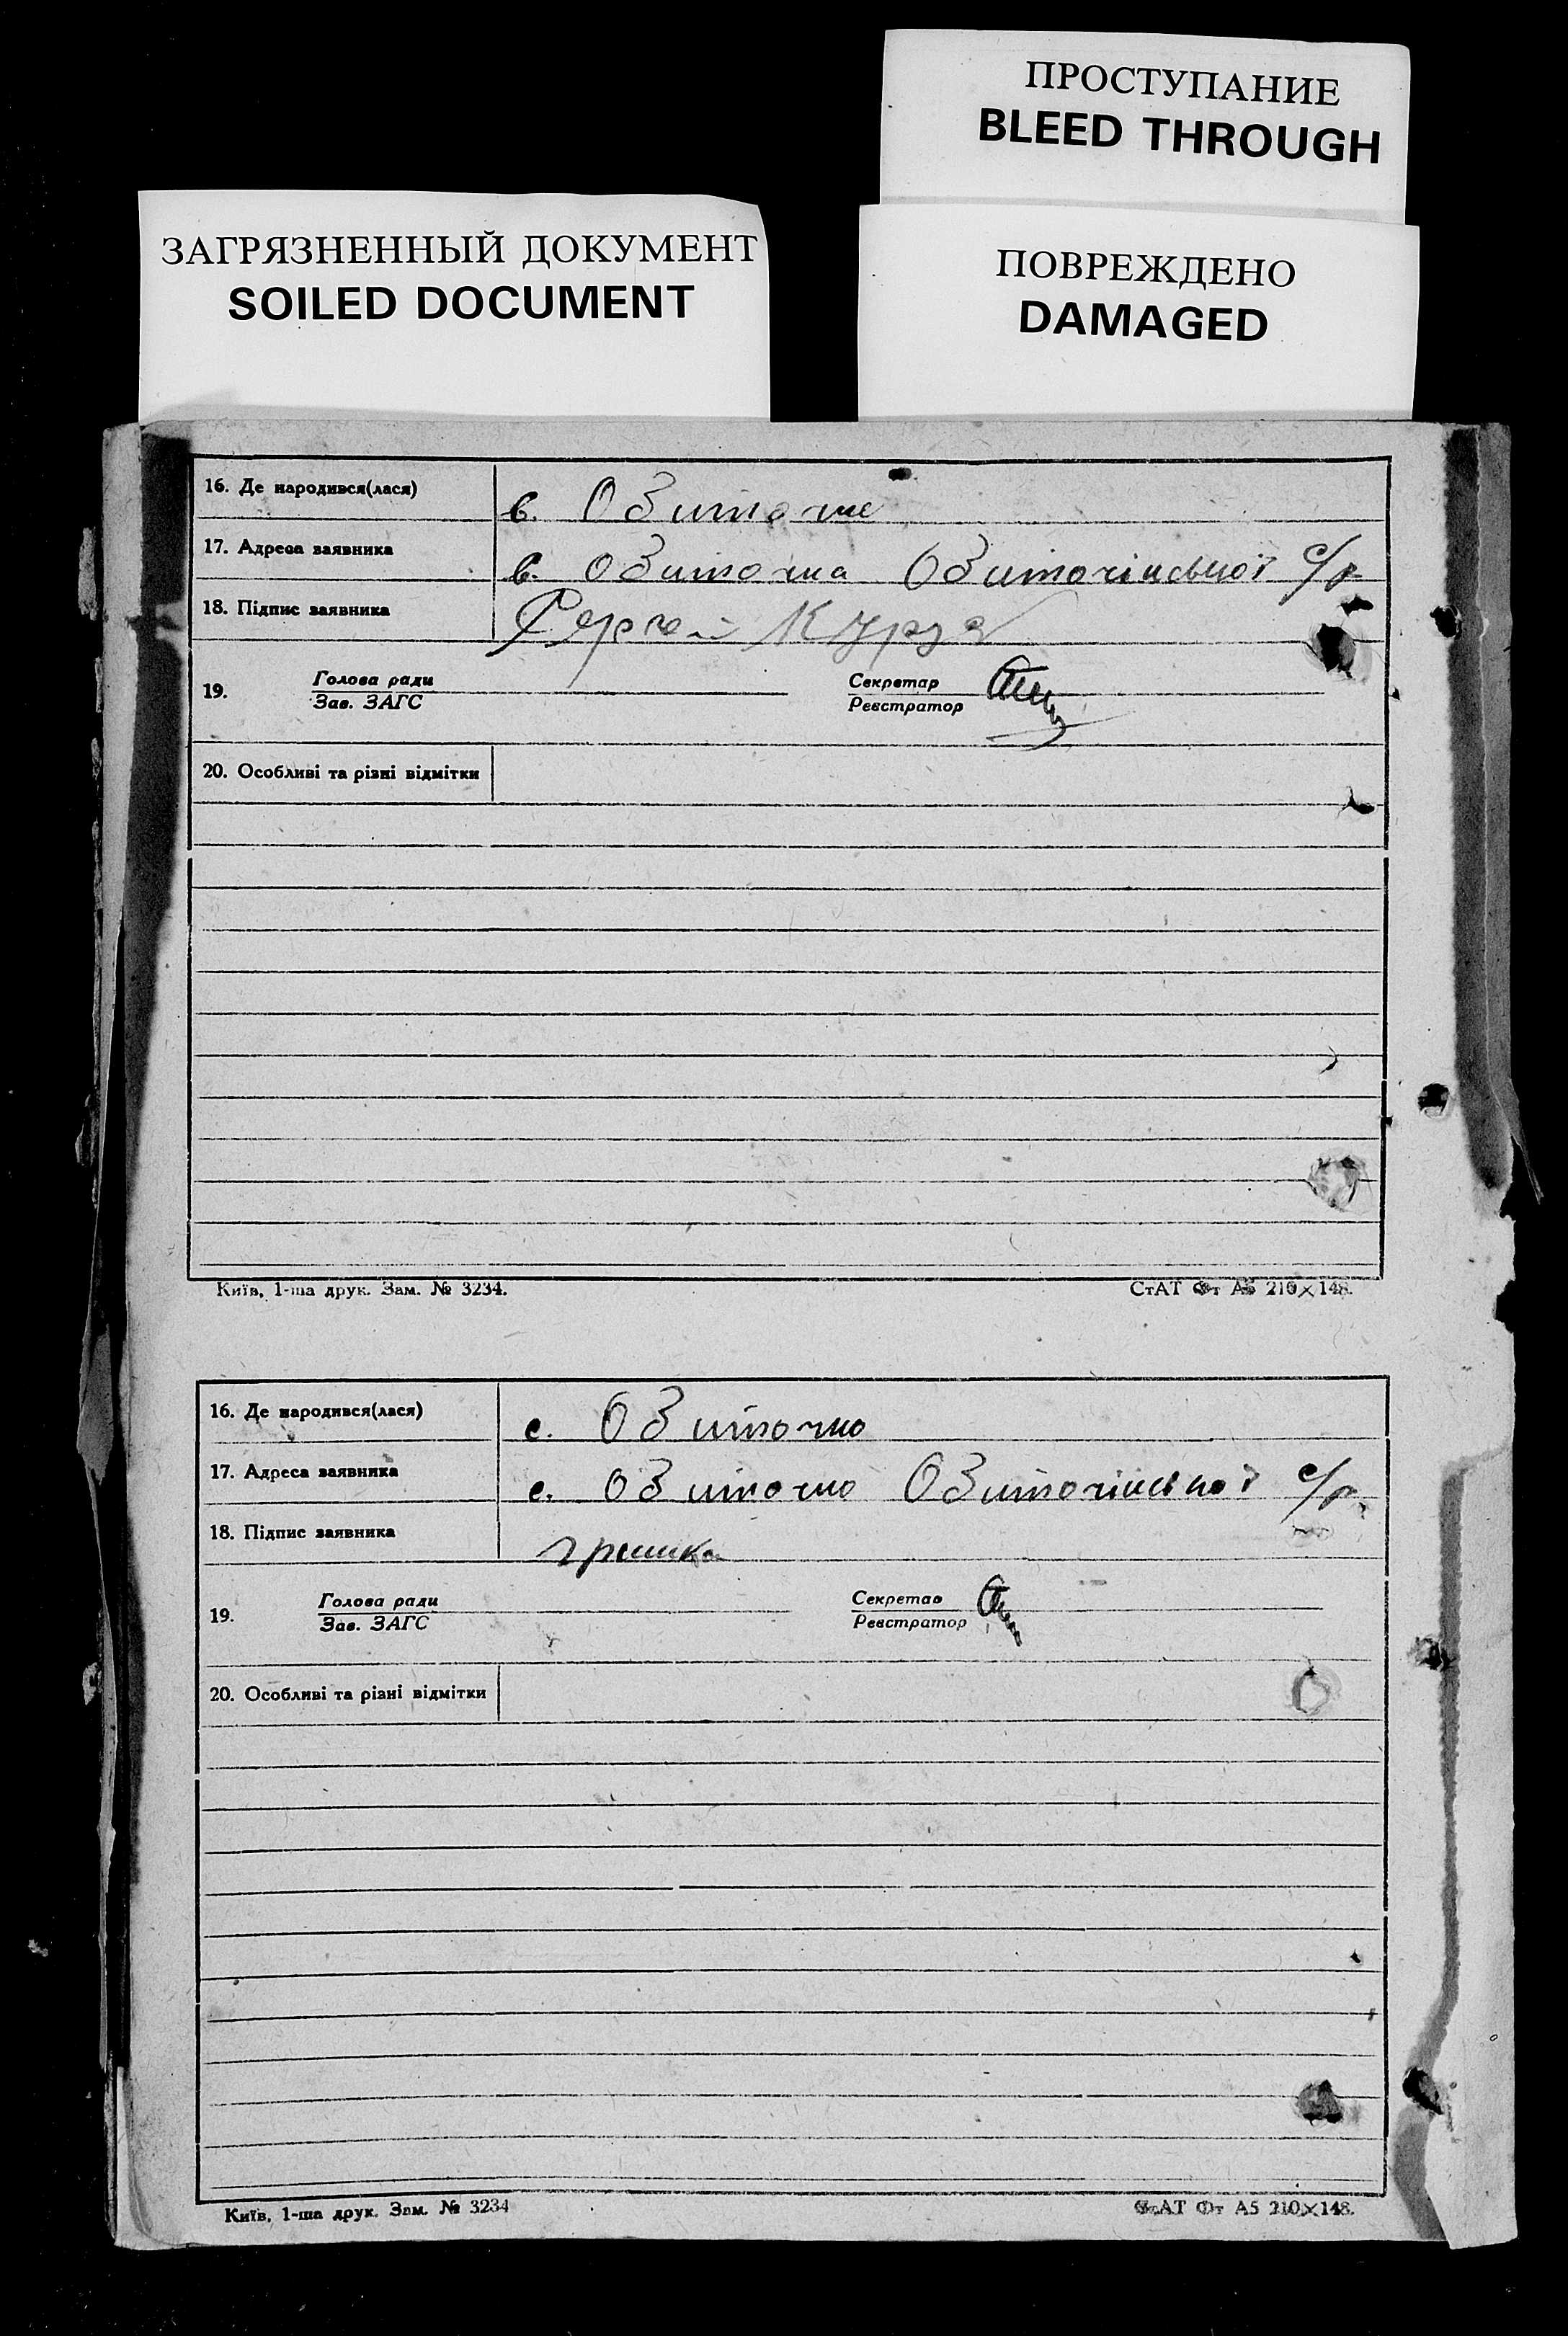 ПРОСТУПАНИЕ
BLEED THROUGH
ЗАГРЯЗНЕННЫЙ ДОКУМЕНТ
SOILED DOCUMENT
ПОВРЕЖДЕНО
DAMAGED
16. Де народився(лася)
в. Обиточне
17. Адреса заявника
в. Обиточна Обиточінської с/р
18. Підпис заявника
19. Голова ради
Зав. ЗАГС
Секретар
Реєстратор
20. Особливі та різні відмітки
Київ, 1-ша друк. Зам. № 3234.
СтАТ Фт А5 210×148.
16. Де народився(лася)
с. Обиточно
17. Адреса заявника
с. Обиточно Обиточінської с/р.
18. Підпис заявника
19. Голова ради
Зав. ЗАГС
Секретар
Реєстратор
20. Особливі та різні відмітки
Київ, 1-ша друк. Зам. № 3234
СтАТ Фт А5 210×148.